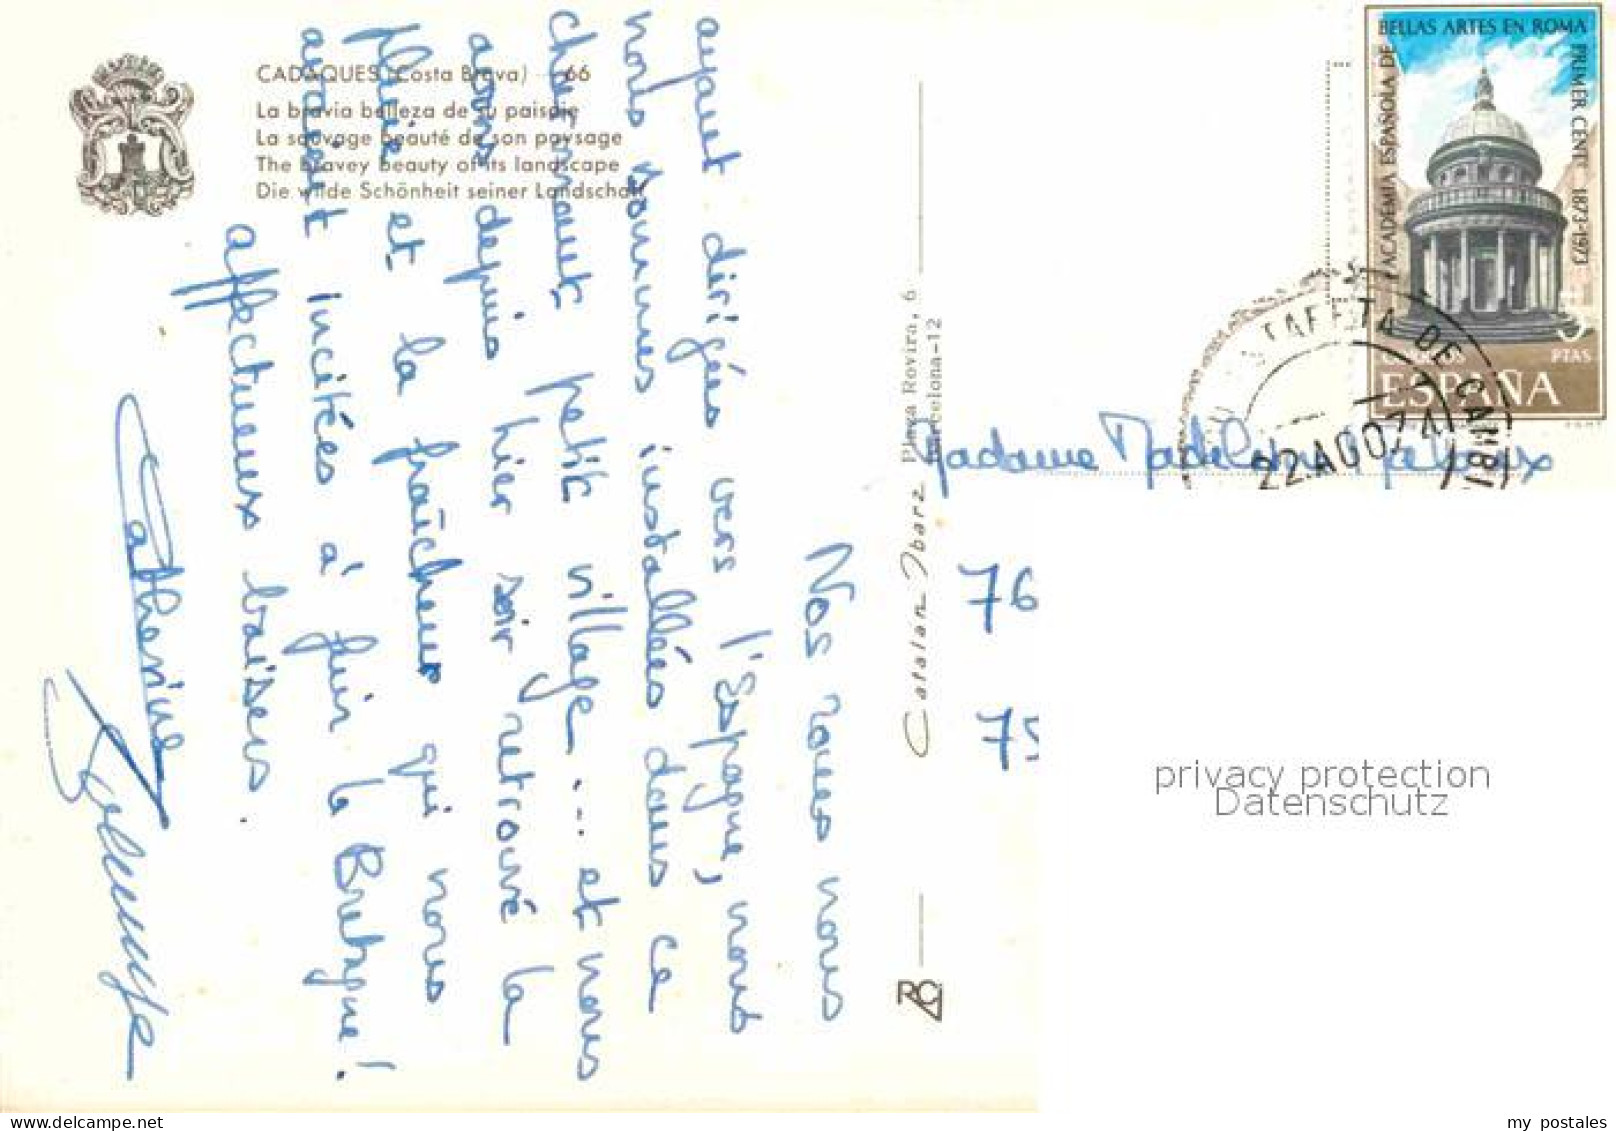 CADAQUES (Costa Brava) 66
La bravia belleza de su paisaje
La sauvage beauté de son paysage
The bravey beauty of its landscape
Die wilde Schönheit seiner Landschaft
Nos roues nous
ayant dirigées vers l'Espagne, nous
nous sommes installées dans ce
charmant petit village ... et nous
avons depuis hier soir retrouvé la
pluie et la fraîcheur qui nous
avaient incitées à fuir la Bretagne!
affectueux baisers.
Catherine
Catalan Ibarz Plaça Rovira, 6
Barcelona-12
RCI
ACADEMIA ESPAÑOLA DE
BELLAS ARTES EN ROMA
PRIMER CENT. 1873-1973
CORREOS
PTAS
ESPAÑA
ESTAFETA DE CAMBI
22.AGO74
Madame
76
75
privacy protection
Datenschutz
my postales